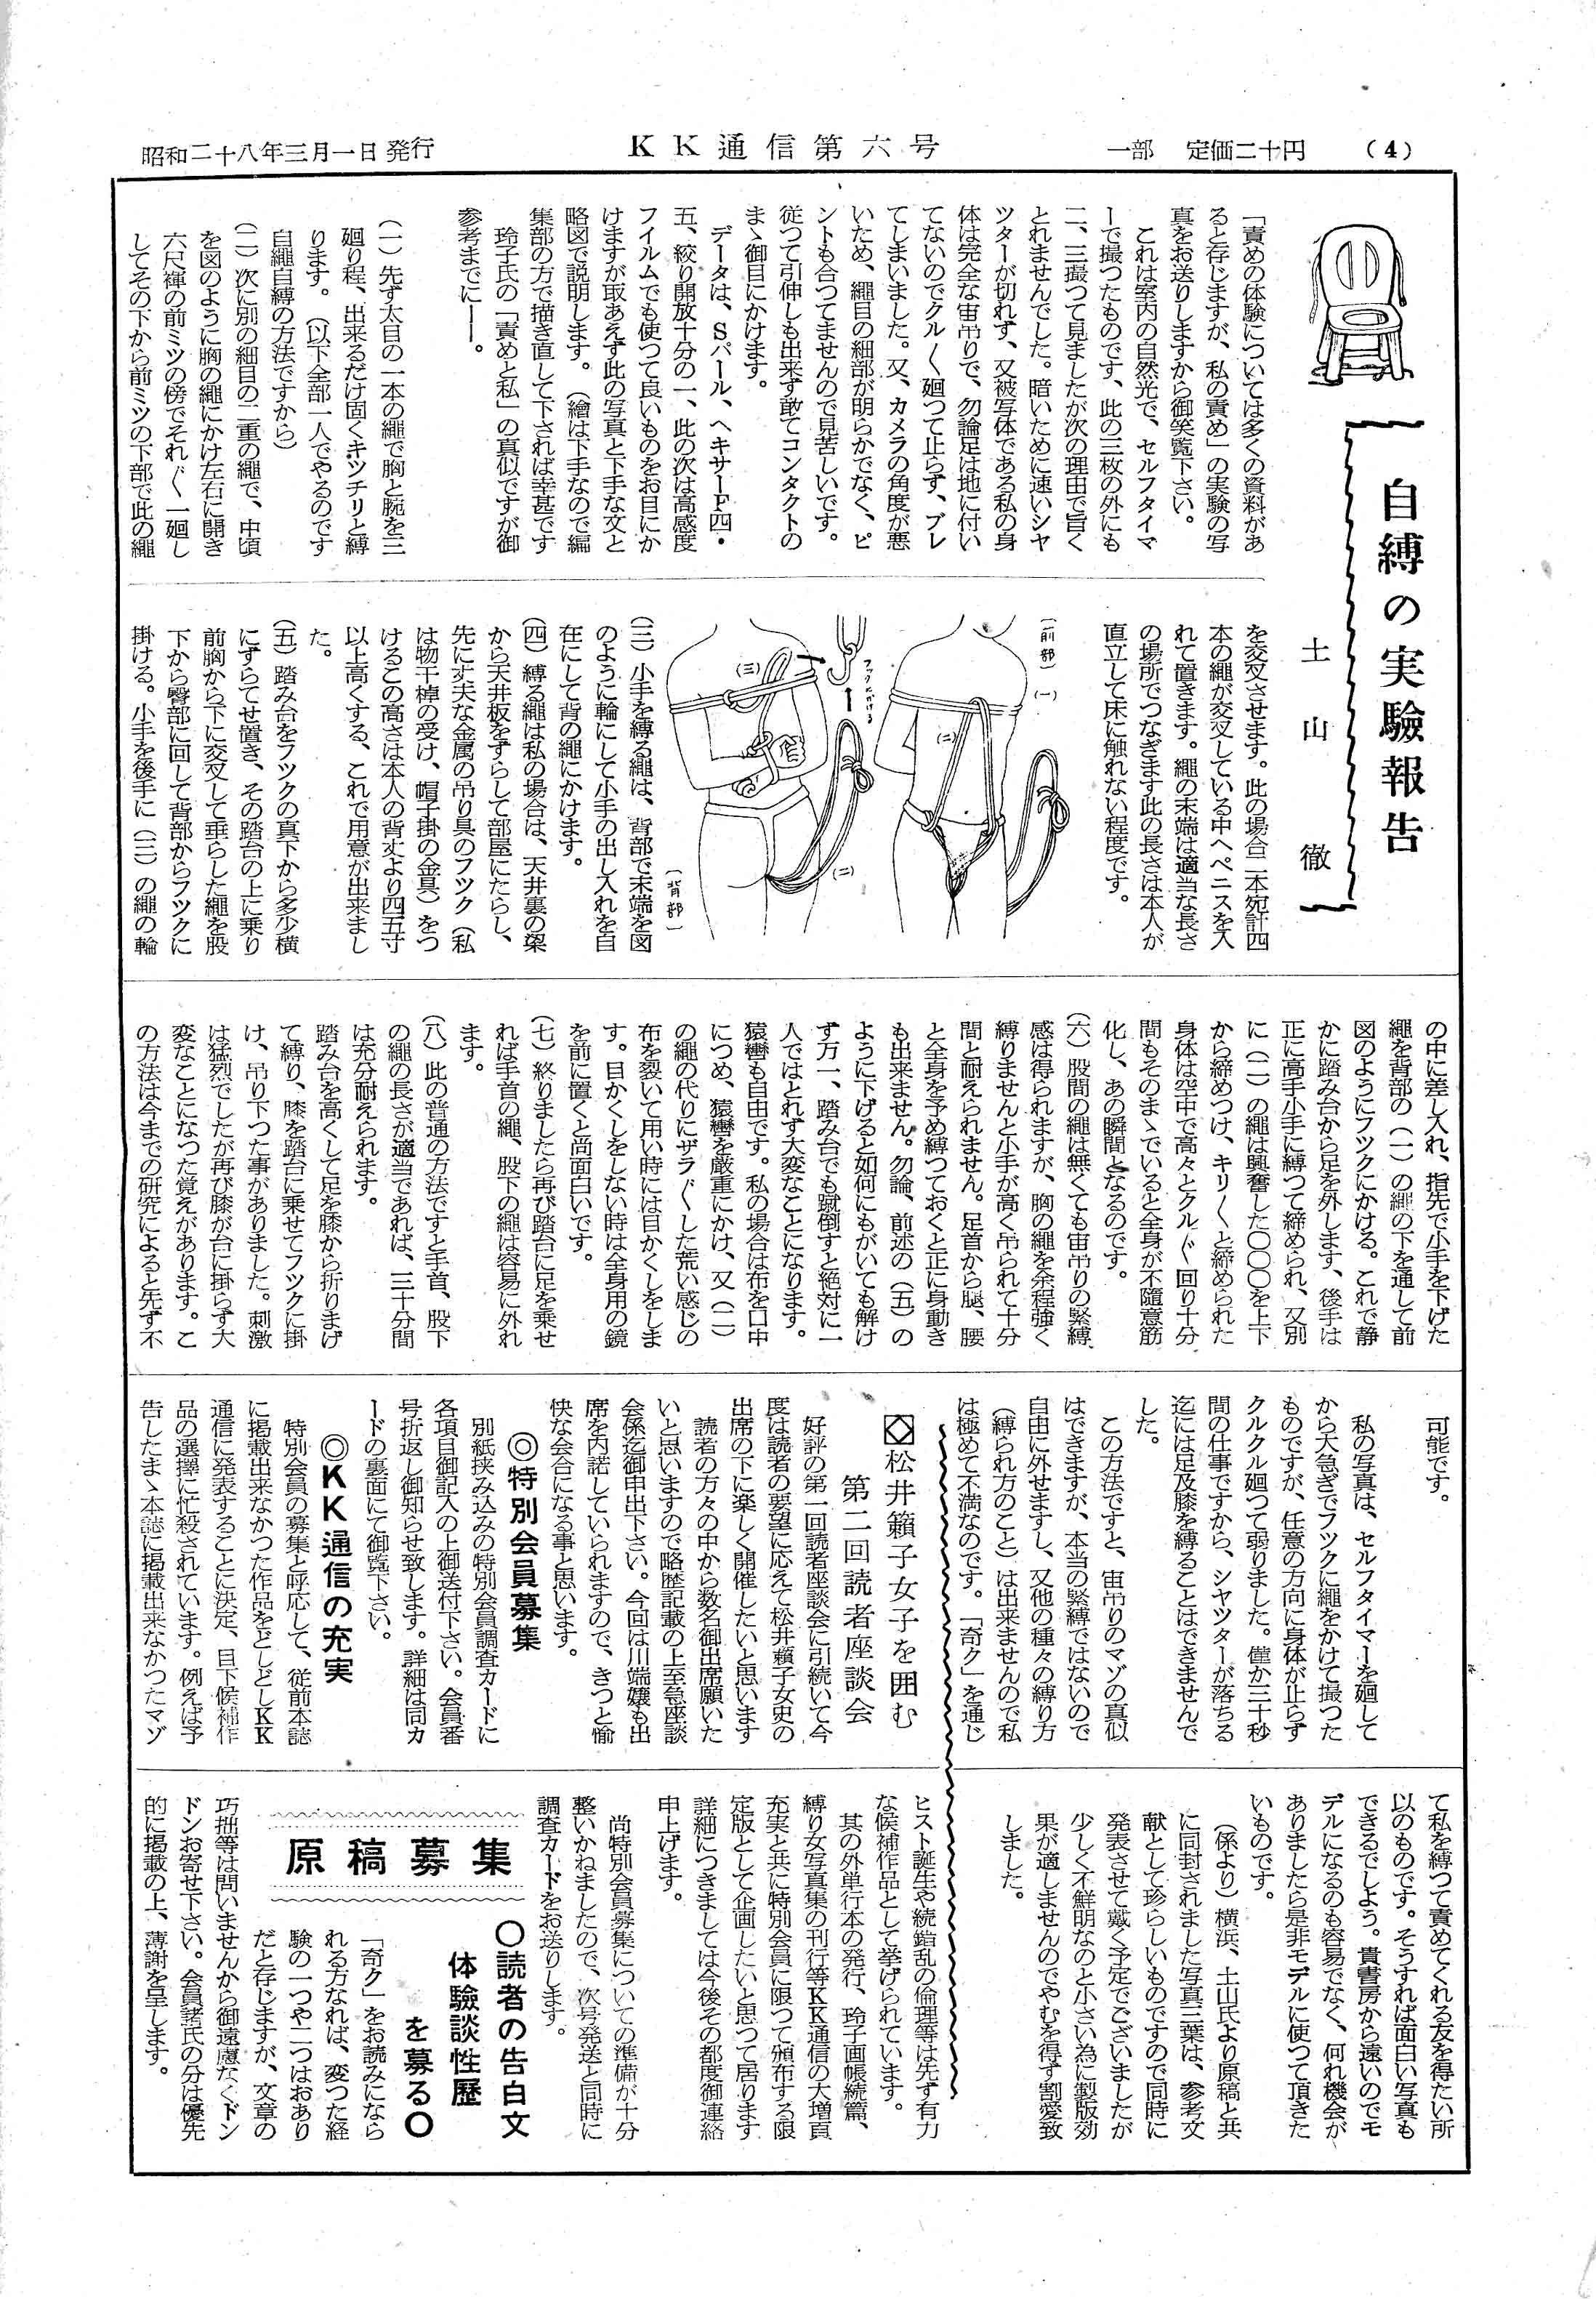 昭和二十八年三月一日発行
KK通信第六号
一部　定価二十円
（4）
自縛の実驗報告
土山徹
「責めの体験については多くの資料があ
ると存じますが、私の責め」の実験の写
真をお送りしますから御笑覧下さい。
これは室内の自然光で、セルフタイマ
ーで撮つたものです、此の三枚の外にも
二、三撮つて見ましたが次の理由で旨く
とれませんでした。暗いために速いシヤ
ツターが切れず、又被写体である私の身
体は完全な宙吊りで、勿論足は地に付い
てないのでクル〱廻つて止らず、ブレ
てしまいました。又、カメラの角度が悪
いため、縄目の細部が明らかでなく、ピ
ントも合つてませんので見苦しいです。
従つて引伸しも出来ず敢てコンタクトの
まゝ御目にかけます。
データは、Sパール、ヘキサーF四・
五、絞り開放十分の一、此の次は高感度
フイルムでも使つて良いものをお目にか
けますが取あえず此の写真と下手な文と
略図で説明します。（繪は下手なので編
集部の方で描き直して下されば幸甚です
玲子氏の「責めと私」の真似ですが御
参考までに――。
（一）先ず太目の一本の縄で胸と腕を三
廻り程、出来るだけ固くキツチリと縛
ります。（以下全部一人でやるのです
自縄自縛の方法ですから）
（二）次に別の細目の二重の縄で、中頃
を図のように胸の縄にかけ左右に開き
六尺褌の前ミツの傍でそれ〲一廻し
してその下から前ミツの下部で此の縄
を交叉させます。此の場合二本宛計四
本の縄が交叉している中へペニスを入
れて置きます。縄の末端は適当な長さ
の場所でつなぎます此の長さは本人が
直立して床に触れない程度です。
（前部）
（一）
（二）
フックにかける
（三）
（二）
（背部）
（三）小手を縛る縄は、背部で末端を図
のように輪にして小手の出し入れを自
在にして背の縄にかけます。
（四）縛る縄は私の場合は、天井裏の梁
から天井板をずらして部屋にたらし、
先に丈夫な金属の吊り具のフツク（私
は物干棹の受け、帽子掛の金具）をつ
けるこの高さは本人の背丈より四五寸
以上高くする、これで用意が出来まし
た。
（五）踏み台をフツクの真下から多少横
にずらてせ置き、その踏台の上に乗り
前胸から下に交叉して垂らした縄を股
下から臀部に回して背部からフツクに
掛ける。小手を後手に（三）の縄の輪
の中に差し入れ、指先で小手を下げた
縄を背部の（一）の縄の下を通して前
図のようにフツクにかける。これで静
かに踏み台から足を外します、後手は
正に高手小手に縛つて締められ、又別
に（二）の縄は興奮した〇〇〇を上下
から締めつけ、キリ〱と締められた
身体は空中で高々とクル〲回り十分
間もそのまゝでいると全身が不随意筋
化し、あの瞬間となるのです。
（六）股間の縄は無くても宙吊りの緊縛
感は得られますが、胸の縄を余程強く
縛りませんと小手が高く吊られて十分
間と耐えられません。足首から腿、腰
と全身を予め縛つておくと正に身動き
も出来ません。勿論、前述の（五）の
ように下げると如何にもがいても解け
ず万一、踏み台でも蹴倒すと絶対に一
人ではとれず大変なことになります。
猿轡も自由です。私の場合は布を口中
につめ、猿轡を厳重にかけ、又（二）
の縄の代りにザラ〲した荒い感じの
布を裂いて用い時には目かくしをしま
す。目かくしをしない時は全身用の鏡
を前に置くと尚面白いです。
（七）終りましたら再び踏台に足を乗せ
れば手首の縄、股下の縄は容易に外れ
ます。
（八）此の普通の方法ですと手首、股下
の縄の長さが適当であれば、三十分間
は充分耐えられます。
踏み台を高くして足を膝から折りまげ
て縛り、膝を踏台に乗せてフツクに掛
け、吊り下つた事がありました。刺激
は猛烈でしたが再び膝が台に掛らず大
変なことになつた覚えがあります。こ
の方法は今までの研究によると先ず不
可能です。
私の写真は、セルフタイマーを廻して
から大急ぎでフツクに縄をかけて撮つた
ものですが、任意の方向に身体が止らず
クルクル廻つて弱りました。僅か三十秒
間の仕事ですから、シヤツターが落ちる
迄には足及膝を縛ることはできませんで
した。
この方法ですと、宙吊りのマゾの真似
はできますが、本当の緊縛ではないので
自由に外せますし、又他の種々の縛り方
（縛られ方のこと）は出来ませんので私
は極めて不満なのです。「奇ク」を通じ
て私を縛つて責めてくれる友を得たい所
以のものです。そうすれば面白い写真も
できるでしよう。貴書房から遠いのでモ
デルになるのも容易でなく、何れ機会が
ありましたら是非モデルに使つて頂きた
いものです。
（係より）横浜、土山氏より原稿と共
に同封されました写真三葉は、参考文
献として珍らしいものですので同時に
発表させて戴く予定でございましたが
少しく不鮮明なのと小さい為に製版効
果が適しませんのでやむを得ず割愛致
しました。
松井籟子女子を囲む
第二回読者座談会
好評の第一回読者座談会に引続いて今
度は読者の要望に応えて松井籟子女史の
出席の下に楽しく開催したいと思います
読者の方々の中から数名御出席願いた
いと思いますので略歴記載の上至急座談
会係迄御申出下さい。今回は川端嬢も出
席を内諾していられますので、きつと愉
快な会合になる事と思います。
◎特別会員募集
別紙挟み込みの特別会員調査カードに
各項目御記入の上御送付下さい。会員番
号折返し御知らせ致します。詳細は同カ
ードの裏面にて御覧下さい。
◎KK通信の充実
特別会員の募集と呼応して、従前本誌
に掲載出来なかつた作品をどしどしKK
通信に発表することに決定、目下候補作
品の選擇に忙殺されています。例えば予
告したまゝ本誌に掲載出来なかつたマゾ
ヒスト誕生や続錯乱の倫理等は先ず有力
な候補作品として挙げられています。
其の外単行本の発行、玲子画帳続篇、
縛り女写真集の刊行等KK通信の大増頁
充実と共に特別会員に限つて頒布する限
定版として企画したいと思つて居ります
詳細につきましては今後その都度御連絡
申上げます。
尚特別会員募集についての準備が十分
整いかねましたので、次号発送と同時に
調査カードをお送りします。
原稿募集
〇読者の告白文
体驗談性歴
を募る〇
「奇ク」をお読みになら
れる方なれば、変つた経
験の一つや二つはおあり
だと存じますが、文章の
巧拙等は問いませんから御遠慮なくドン
ドンお寄せ下さい。会員諸氏の分は優先
的に掲載の上、薄謝を呈します。